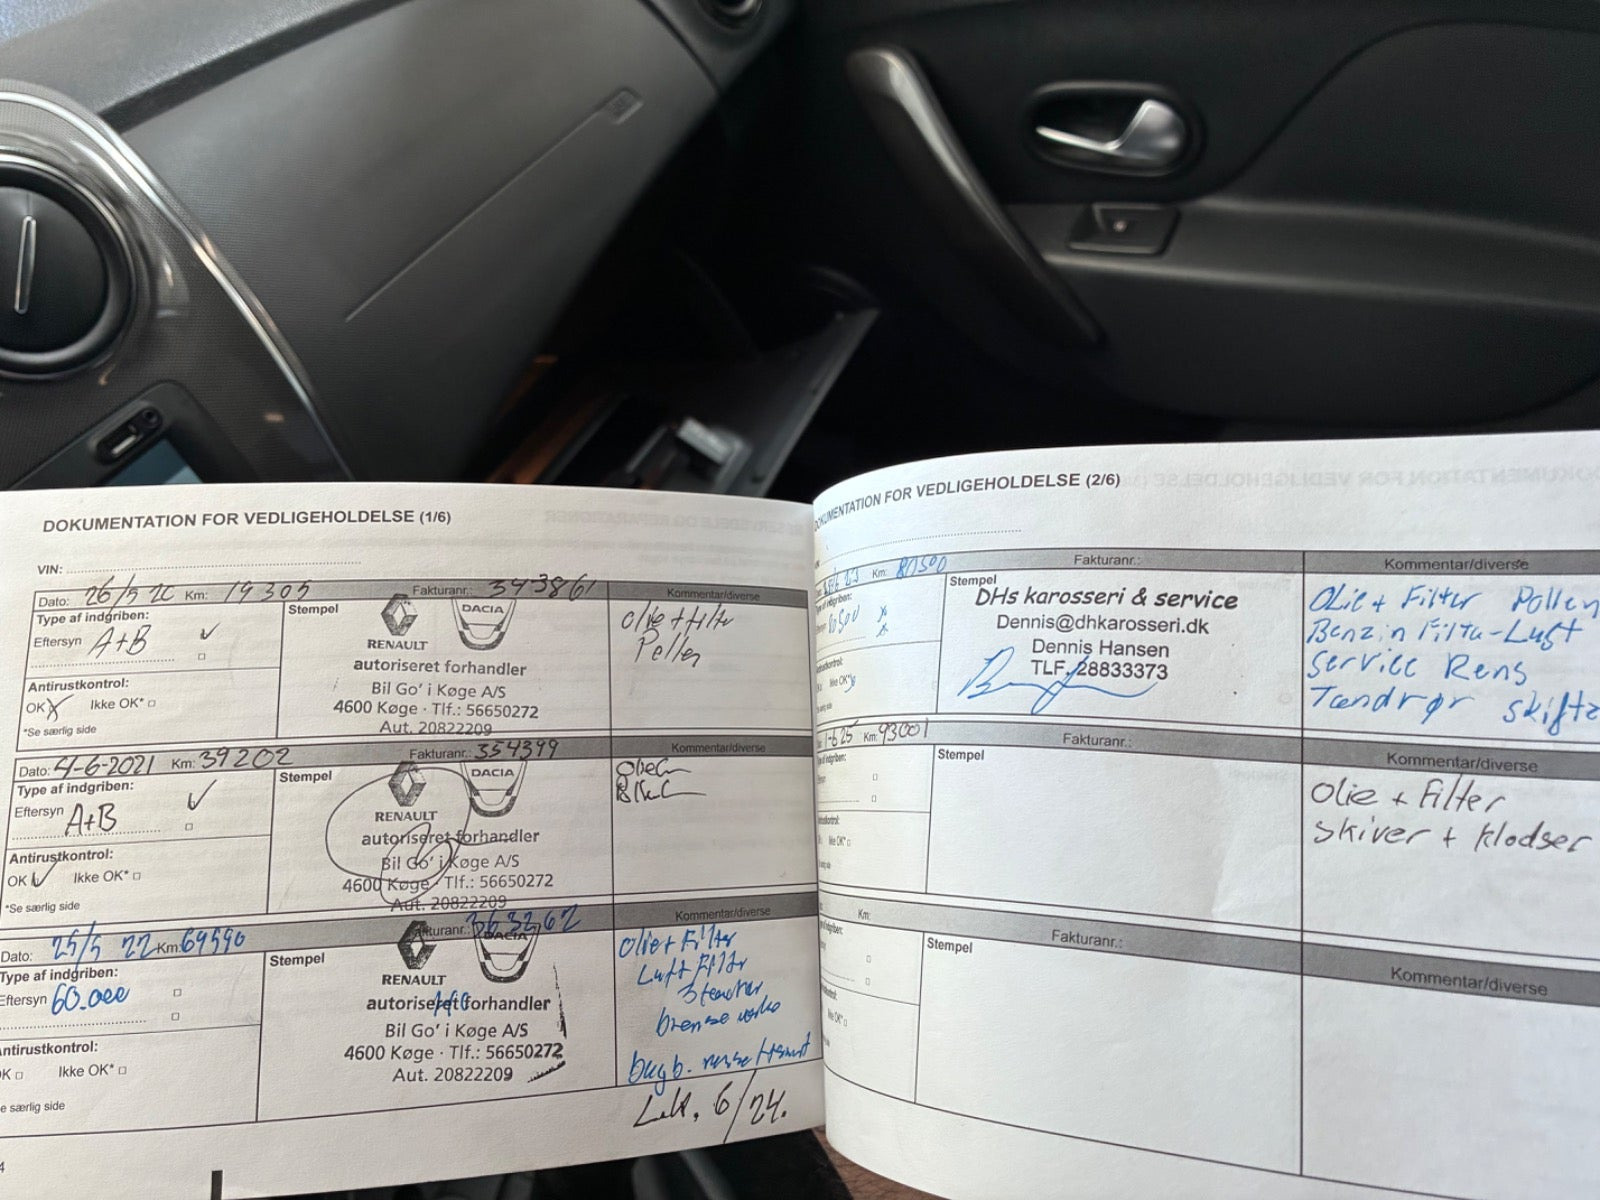 DOKUMENTATION FOR VEDLIGEHOLDELSE (1/6)
VIN:
Dato: 26/5 20 Km: 19305 Fakturanr.: 343861 Kommentar/diverse
Type af indgriben:
Eftersyn A+B
Stempel
RENAULT DACIA
autoriseret forhandler
Bil Go' i Køge A/S
4600 Køge · Tlf.: 56650272
Aut. 20822209
Olie + filter
Pollen
Antirustkontrol:
OK Ikke OK*
*Se særlig side
Dato: 4-6-2021 Km: 39202 Fakturanr.: 354399 Kommentar/diverse
Type af indgriben:
Eftersyn A+B
Stempel
RENAULT DACIA
autoriseret forhandler
Bil Go' i Køge A/S
4600 Køge · Tlf.: 56650272
Aut. 20822209
Antirustkontrol:
OK Ikke OK*
*Se særlig side
Dato: 25/5 22 Km: 69590 Fakturanr.: 363262 Kommentar/diverse
Type af indgriben:
Eftersyn 60.000
Stempel
RENAULT DACIA
autoriseret forhandler
Bil Go' i Køge A/S
4600 Køge · Tlf.: 56650272
Aut. 20822209
Olie + Filter
Luft Filter
bremse
Antirustkontrol:
OK Ikke OK*
Se særlig side
6/24.
4
DOKUMENTATION FOR VEDLIGEHOLDELSE (2/6)
Km: 80500 Fakturanr.: Kommentar/diverse
Stempel
DHs karosseri & service
Dennis@dhkarosseri.dk
Dennis Hansen
TLF. 28833373
Olie + Filter Pollen
Benzin Filter - Luft
Service Rens
Tændrør skifte
Ikke OK*
1-6 25 Km: 93001 Fakturanr.: Kommentar/diverse
Stempel
Olie + Filter
Skiver + Klodser
Ikke OK*
Km: Fakturanr.: Kommentar/diverse
Stempel
Ikke OK*